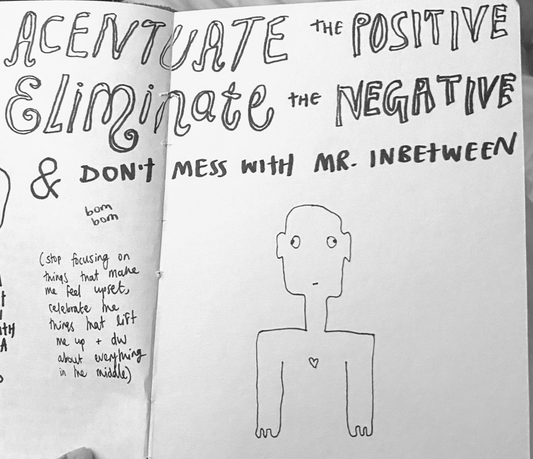 ACENTUATE THE POSITIVE
Eliminate THE NEGATIVE
& DON'T MESS WITH MR. INBETWEEN
bom
bom
(stop focusing on
things that make
me feel upset,
celebrate the
things that lift
me up + dw
about everything
in the middle)